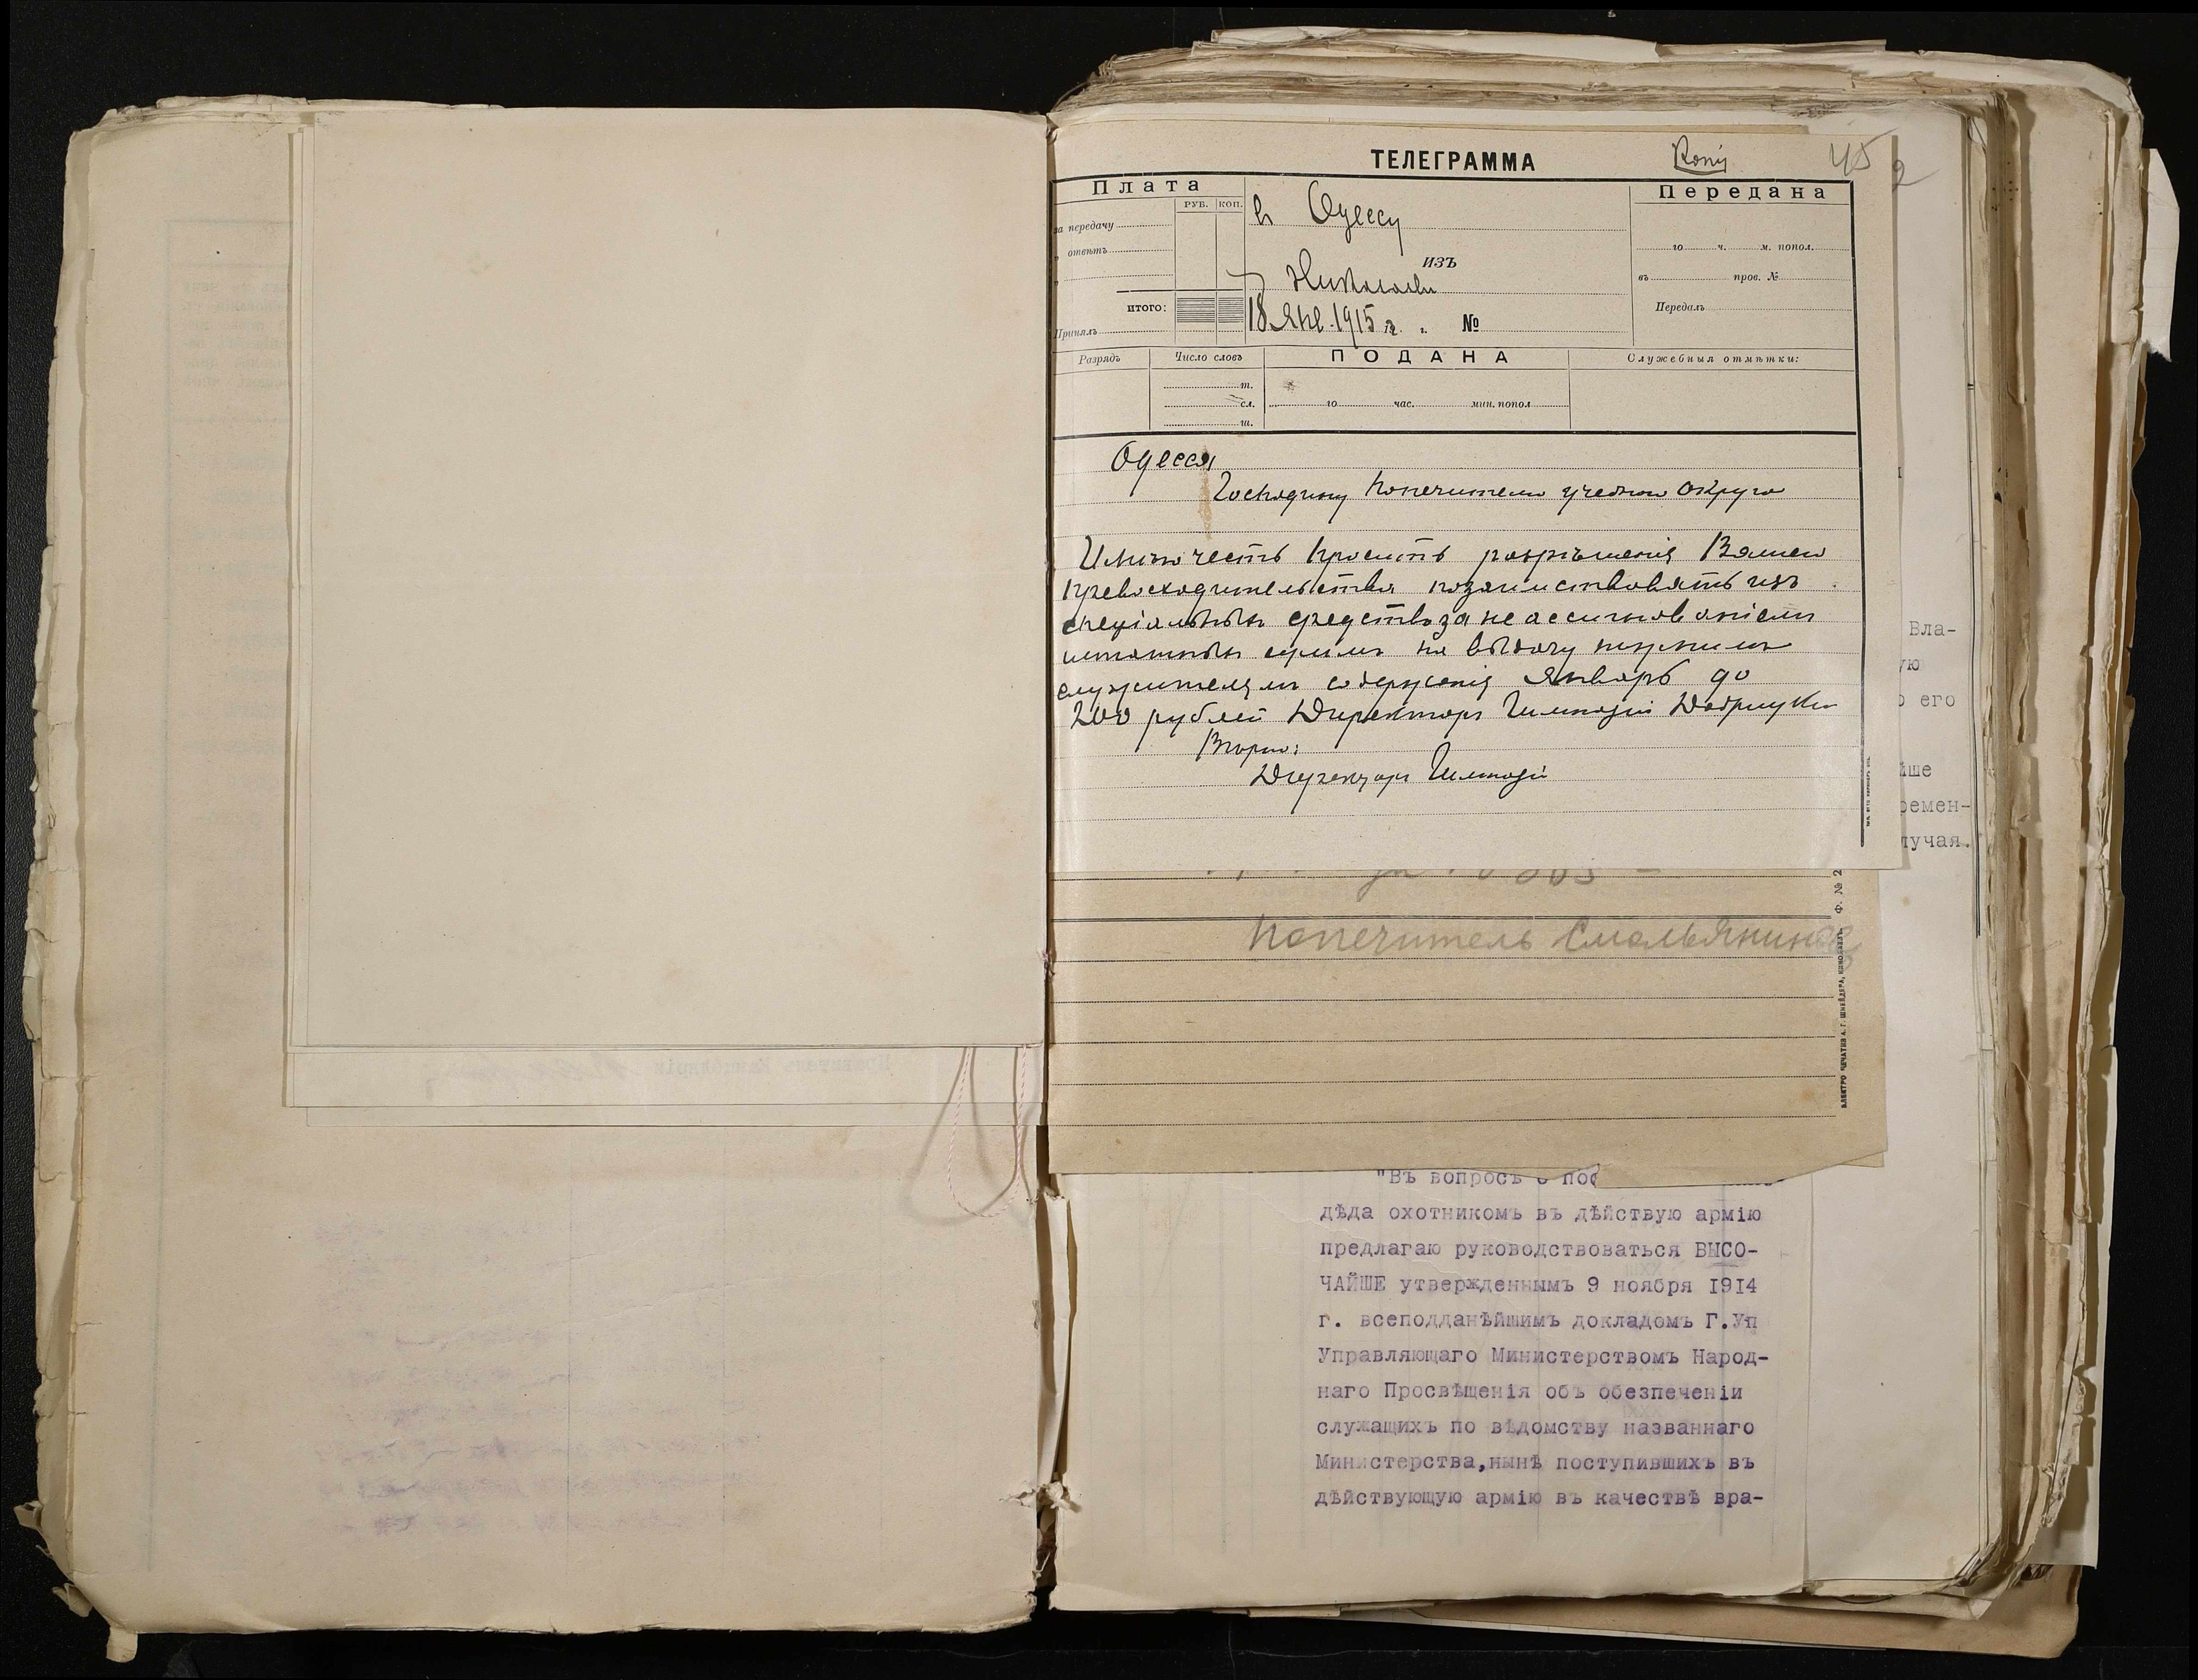 ТЕЛЕГРАММА
Копія
45
2
Плата
РУБ. КОП.
за передачу
" отвѣтъ
итого:
Принялъ
в Одессу
ИЗЪ
Николаева
18 Янв. 1915 г. №
Передана
го ч. м. попол.
въ пров. №
Передалъ
Разрядъ
Число словъ
т.
сл.
ш.
ПОДАНА
го час. мин. попол
Служебныя отмѣтки:
Одесса
Господину Попечителю учебнаго Округа
Имѣю честь просить разрѣшенія Вашего
Превосходительства позаимствовать изъ
спеціальныхъ средствъ за неассигнованіемъ
штатныхъ суммъ на выдачу нижнимъ
служителямъ содержанія Январь до
200 рублей Директоръ Гимназіи
Вѣрно:
Директоръ Гимназіи
Попечитель Смольяниновъ
ЭЛЕКТРО ПЕЧАТНЯ А. Г. ШНЕЙДЕРА, НИКОЛАЕВЪ Ф. № 2
Вла-
ую
о его
йше
ремен-
лучая.
"Въ вопросѣ о пос
дѣда охотникомъ въ дѣйствую армію
предлагаю руководствоваться ВЫСО-
ЧАЙШЕ утвержденнымъ 9 ноября 1914
г. всеподданѣйшимъ докладомъ Г.Уп
Управляющаго Министерствомъ Народ-
наго Просвѣщенія объ обезпеченіи
служащихъ по вѣдомству названнаго
Министерства,нынѣ поступившихъ въ
дѣйствующую армію въ качествѣ вра-